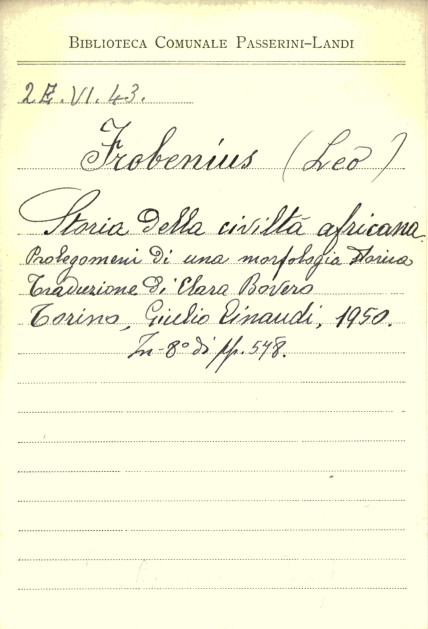 BIBLIOTECA COMUNALE PASSERINI-LANDI
2E.VI.43.
Frobenius (Leo)
Storia della civiltà africana.
Prolegomeni di una morfologia storica
Traduzione di Clara Bovero
Torino, Giulio Einaudi, 1950.
In-8° di pp. 548.